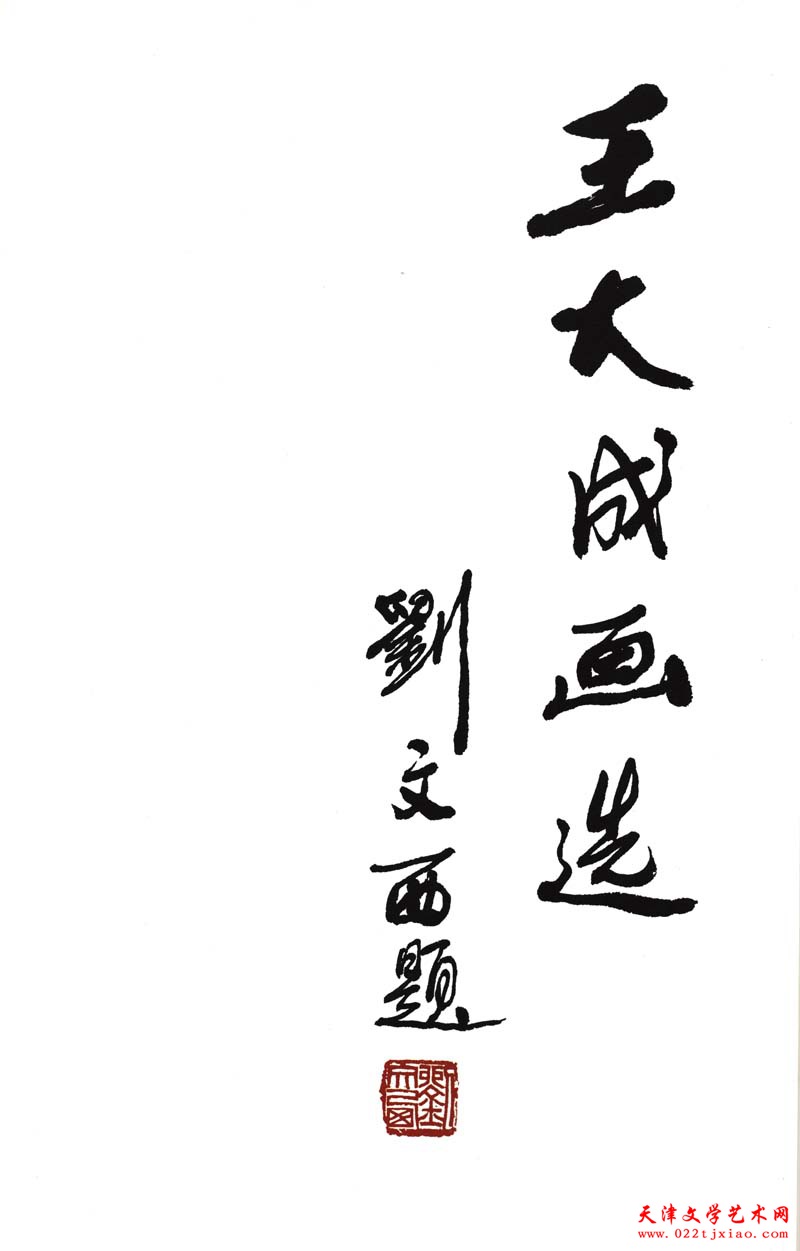 王大成画选
劉文西題
劉文西
天津文学艺术网
www.022tjxiao.com